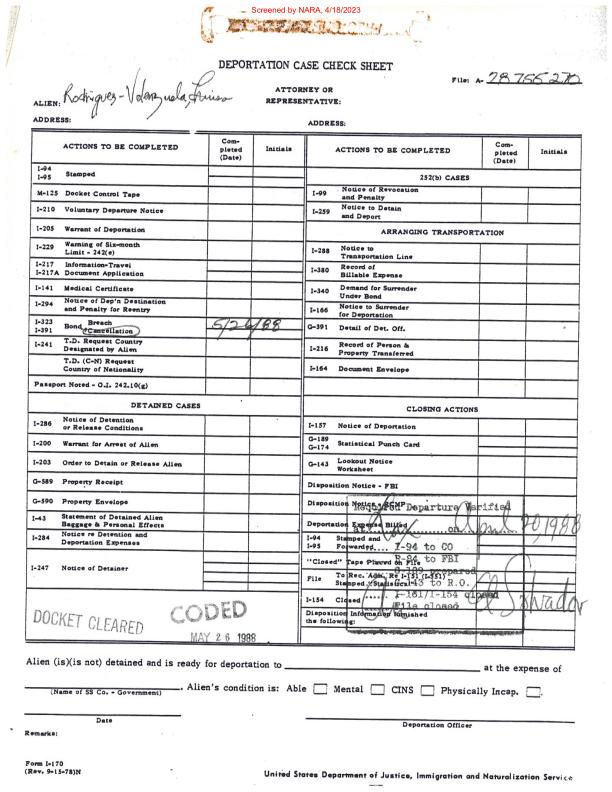 Screened by NARA, 4/18/2023
DEPORTATION CASE CHECK SHEET
File: A- 28 755 270
ALIEN: Rodriguez-Valenzuela,
ATTORNEY OR
REPRESENTATIVE:
ADDRESS:
ADDRESS:
ACTIONS TO BE COMPLETED
Com-
pleted
(Date)
Initials
I-94
I-95 Stamped
M-125 Docket Control Tape
I-210 Voluntary Departure Notice
I-205 Warrant of Deportation
I-229 Warning of Six-month
Limit - 242(e)
I-217 Information-Travel
I-217A Document Application
I-141 Medical Certificate
I-294 Notice of Dep'n Destination
and Penalty for Reentry
I-323
I-391 Bond Breach
Cancellation 5/26/88
I-241 T.D. Request Country
Designated by Alien
T.D. (C-N) Request
Country of Nationality
Passport Noted - O.I. 242.10(g)
DETAINED CASES
I-286 Notice of Detention
or Release Conditions
I-200 Warrant for Arrest of Alien
I-203 Order to Detain or Release Alien
G-589 Property Receipt
G-590 Property Envelope
I-43 Statement of Detained Alien
Baggage & Personal Effects
I-284 Notice re Detention and
Deportation Expenses
I-247 Notice of Detainer
DOCKET CLEARED
CODED
MAY 26 1988
ACTIONS TO BE COMPLETED
Com-
pleted
(Date)
Initials
252(b) CASES
I-99 Notice of Revocation
and Penalty
I-259 Notice to Detain
and Deport
ARRANGING TRANSPORTATION
I-288 Notice to
Transportation Line
I-380 Record of
Billable Expense
I-340 Demand for Surrender
Under Bond
I-166 Notice to Surrender
for Deportation
G-391 Detail of Det. Off.
I-216 Record of Person &
Property Transferred
I-164 Document Envelope
CLOSING ACTIONS
I-157 Notice of Deportation
G-189
G-174 Statistical Punch Card
G-143 Lookout Notice
Worksheet
Disposition Notice - FBI
Disposition Notice -
Required Departure Verified
Deportation Expense Billed
at on April 20, 1988
I-94 Stamped and
I-95 Forwarded.... I-94 to CO
R-84 to FBI
"Closed" Tape Placed on File
G-189 prepared
File To Rec. Adm. Re I-151 (I-551)
Stamped /Statistical G-143 to R.O.
I-161/I-154 closed
I-154 Closed
File closed
El Salvador
Disposition Information furnished
the following:
Alien (is)(is not) detained and is ready for deportation to at the expense of
. Alien's condition is: Able Mental CINS Physically Incap. .
(Name of SS Co. - Government)
Date
Deportation Officer
Remarks:
Form I-170
(Rev. 9-15-78)N
United States Department of Justice, Immigration and Naturalization Service